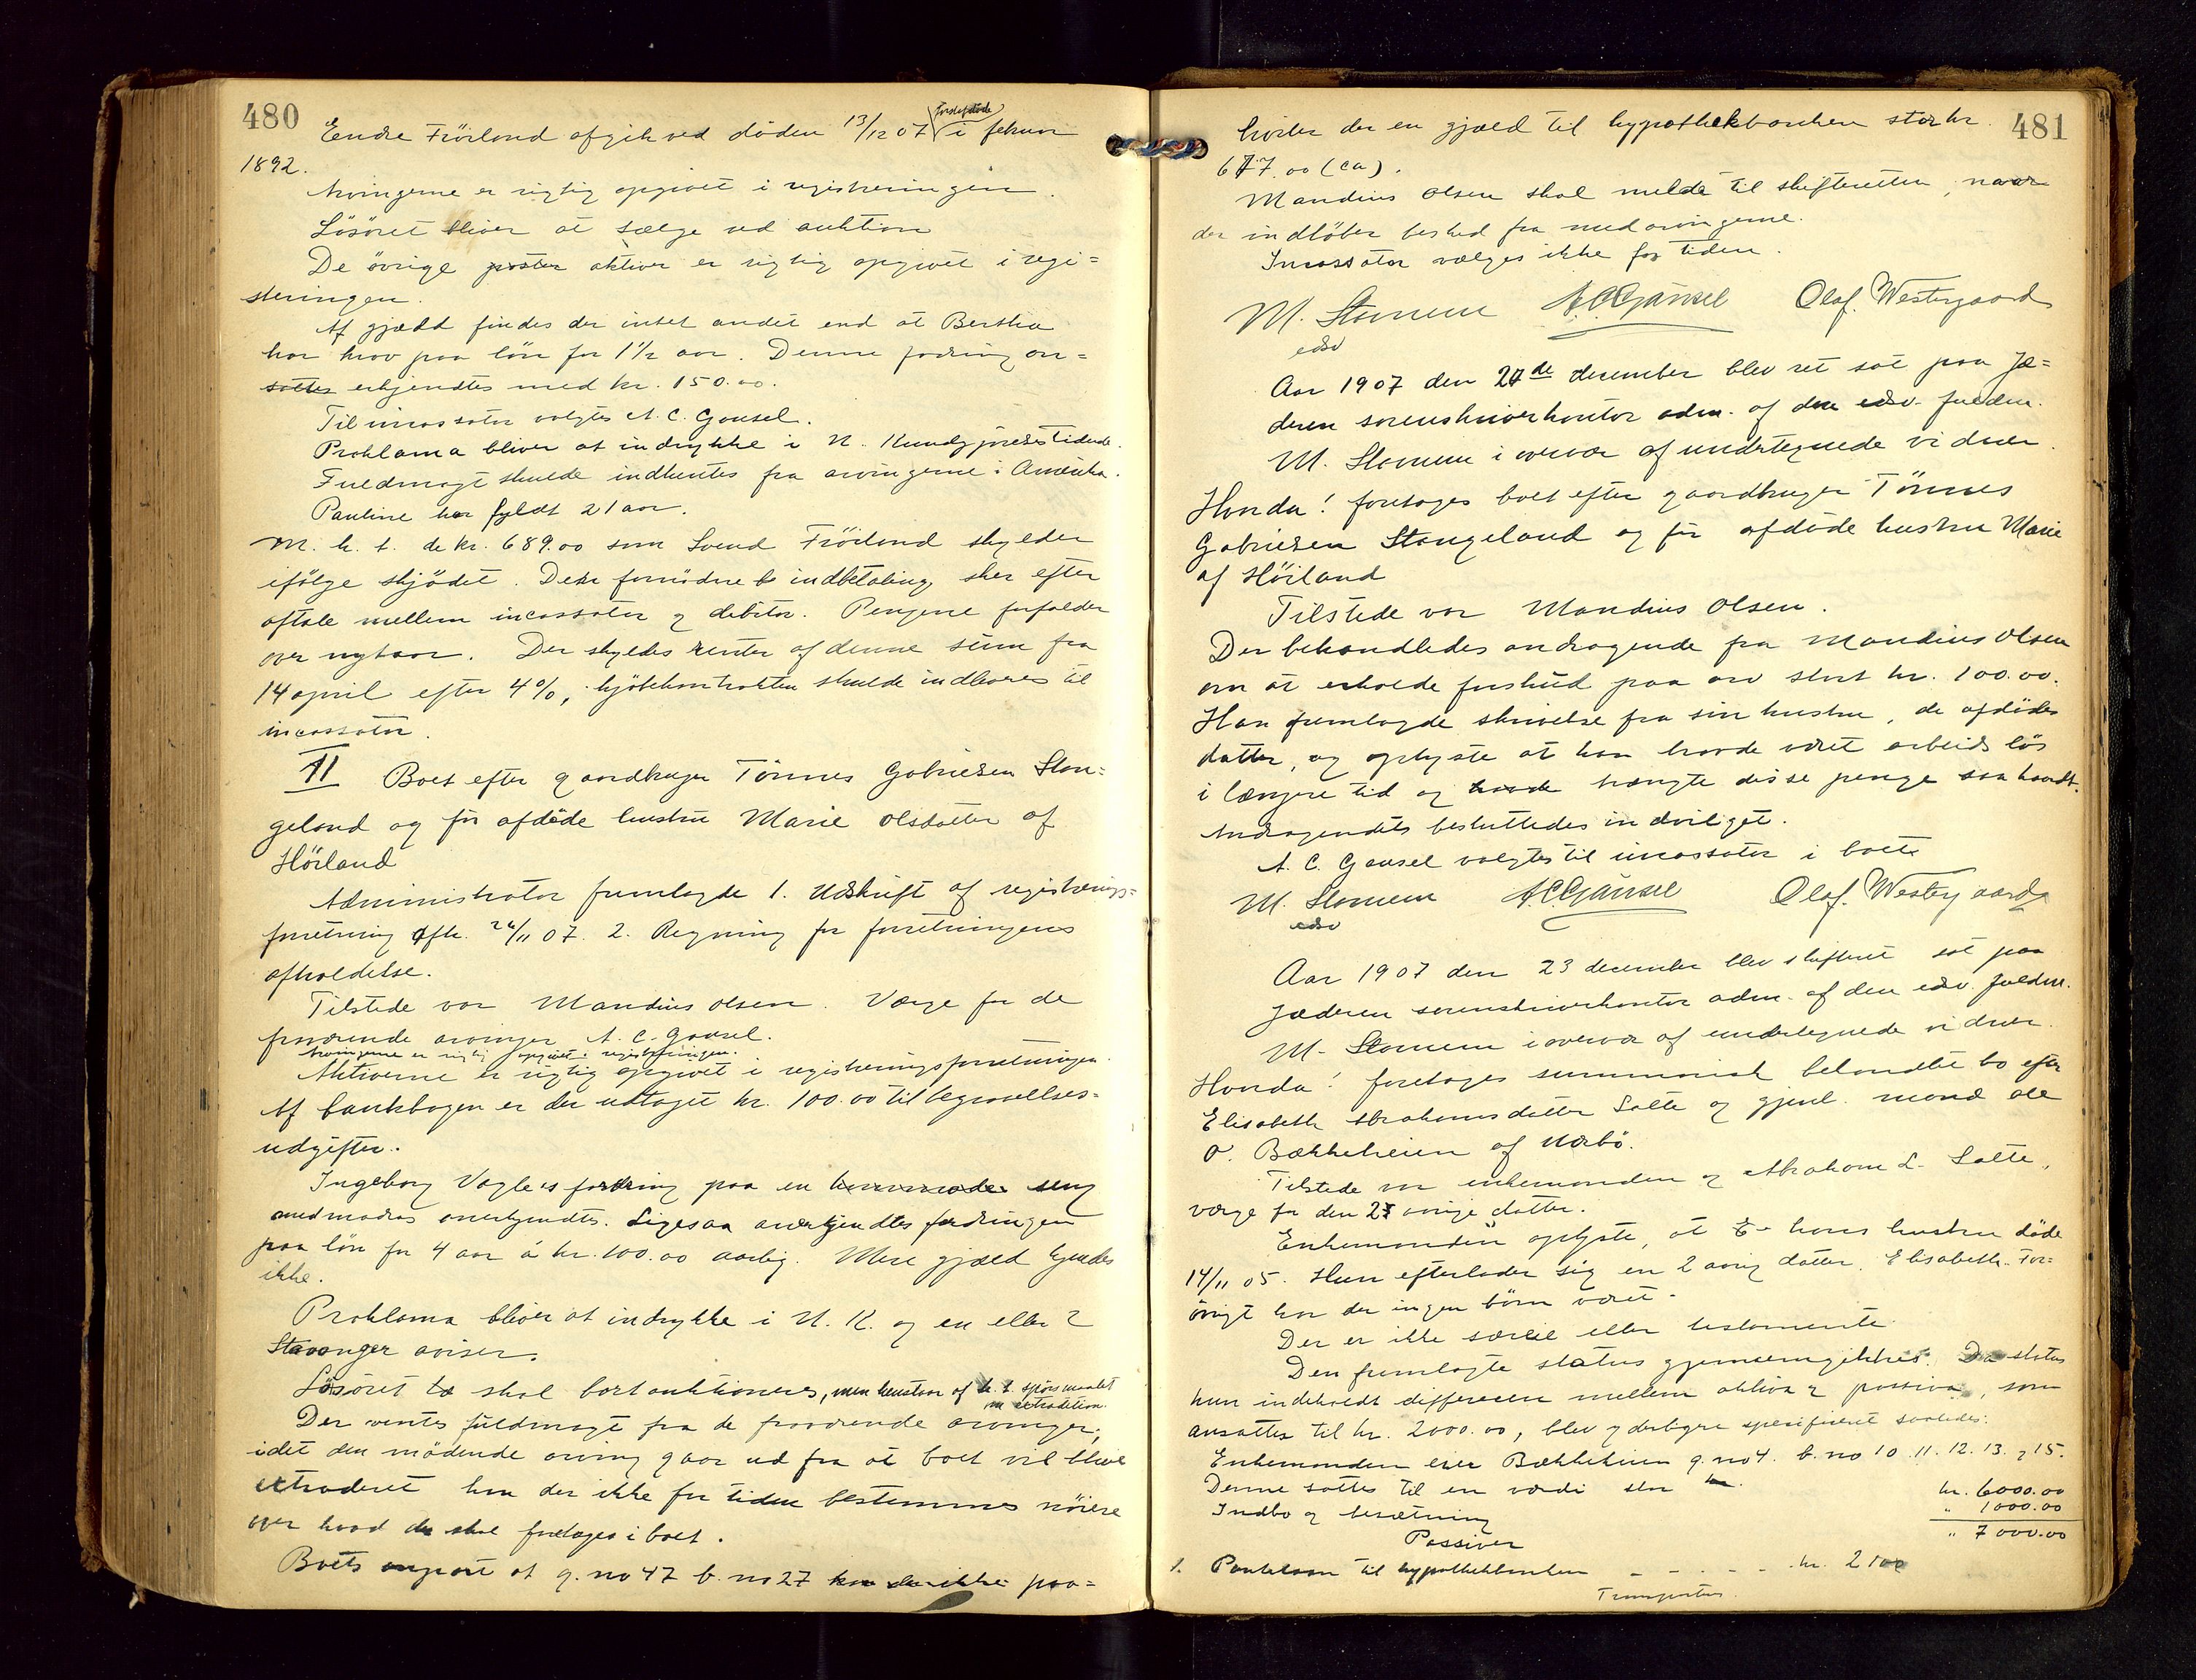 480
Endre Fröiland afgik ved döden 13/12 07 i februar
1892.
Arvingerne er rigtig opgivet i registreringen.
Lösöret bliver at sælge ved auktion
De övrige poster aktiver er rigtig opgivet i regi=
steringen.
Af gjæld findes der intet andet end at Bertha
har krav paa lön for 1 1/2 aar. Denne fodring an=
sattes erkjendtes med kr. 150.00.
Til incassator valgtes A. C. Gausel.
Proklama bliver at indrykke i N. Kundgjörelsestidende.
Fuldmagt skulde indhentes fra arvingerne i Amerika.
Pauline har fyldt 21 aar.
M. h. t. de kr. 689.00 som Svend Fröiland skylder
ifölge skjödet. Den fornödne indbetaling sker efter
aftale mellem incassator og debitor. Pengene forfalder
over nytaar. Der skyldes renter af denne sum fra
14 april efter 4%, kjöbekontrakten skulde indleveres til
incassator.
II Boet efter gaardbruger Tönnes Gabrielsen Stan=
geland og för afdöde hustru Marie Olsdatter af
Höiland
Administrator fremlagde 1. Udskrift af registrerings=
forretning afh. 26/11 07. 2. Regning for forretningens
afholdelse.
Tilstede var Mandius Olsen. Værge for de
fraværende arvinger A. C. Gausel.
Arvingerne er rigtig opgivet i registreringen.
Aktiverne er rigtig opgivet i registreringsforretningen.
Af bankbogen er der udtaget kr. 100.00 til begravelses=
udgifter.
Ingeborg Vagle's fordring paa en kommode seng
medmadras anerkjendtes. Ligesaa anerkjendtes fordringen
paa lön for 4 aar á kr. 100.00 aarlig. Mere gjæld kjendes
ikke.
Proklama bliver at indrykke i N. K. og en eller 2
Stavanger aviser.
Lösöret skal bortauktioneres, men henstaar af h. t. spörsmaalet
om extradition.
Der ventes fuldmagt fra de fraværende arvinger,
idet den mödende arving gaar ud fra at boet vil blive
extraderet hvor der ikke for tiden bestemmes nöiere
over hvad der skal foretages i boet.
Boets anpart af g. no 47 b. no 27 har der ikke paa=
481
hviler der en gjæld til hypothekbanken stor kr.
677.00 (ca).
Mandius Olsen skal melde til skifteretten, naar
der indlöber besked fra medarvingerne.
Incassator vælges ikke for tiden.
M. Stamm A. C. Gausel Olaf. Westergaard
edsv
Aar 1907 den 27de december blev ret sat paa Jæ=
deren sorenskriverkontor adm. af den edsv. fuldm.
M. Stamm i overvær af undertegnede vidner.
Hvorda! foretoges boet efter gaardbruger Tönnes
Gabrielsen Stangeland og för afdöde hustru Marie
af Höiland
Tilstede var Mandius Olsen.
Der behandledes andragende fra Mandius Olsen
om at erholde forskud paa arv stort kr. 100.00.
Han fremlagde skrivelse fra sin hustru, de afdödes
datter, og oplyste at han havde været arbeidslös
i længere tid og havde trængte disse penge saa haardt.
Andragendets besluttedes indvilget.
A. C. Gausel valgtes til incassator i boet
M. Stamm A. C. Gausel Olaf. Westergaard
edsv
Aar 1907 den 23 december blev skifteret sat paa
Jæderen sorenskriverkontor adm. af den edsv. fuldm.
M. Stamm i overvær af undertegnede vidner.
Hvorda! foretoges summarisk behandlet bo efter
Elisabeth Abrahamsdatter Salte og gjenl. mand Ole
O. Bækkeheien af Nærbö.
Tilstede var enkemanden og Abraham L. Salte,
værge for den 2 aarige datter.
Enkemanden oplyste, at hans hustru döde
14/11 05. Hun efterlader sig en 2 aarig datter, Elisabeth. For=
övrigt har der ingen börn været.
Der er ikke særeie eller testamente.
Den fremlagte status gjennemgikkes. Da status
kun indeholdt differencen mellem aktiva & passiva, som
ansattes til kr. 2000.00, blev yderligere specificeret saaledes:
Enkemanden eier Bækkeheien g. no 4. b. no 10. 11. 12. 13. & 15.
Denne sattes til en værdi stor kr. kr. 6000.00
Indbo og besætning " 1000.00
" 7000.00
Passiver
1. Pantelaan til hypothekbanken kr. 2100
Transporteres